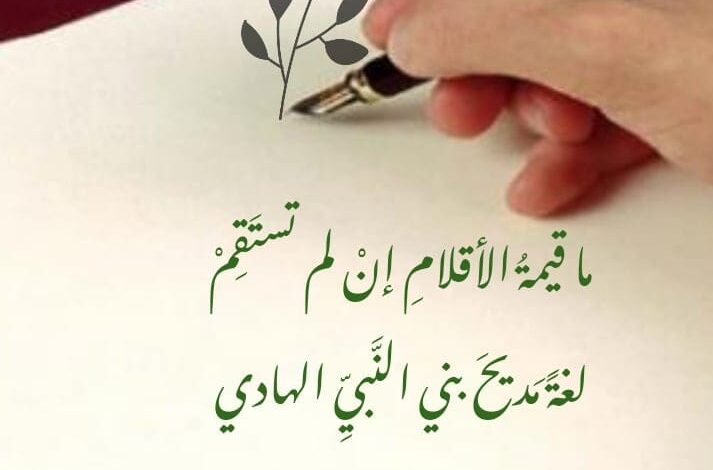 ما قيمةُ الأقلامِ إنْ لم تستَقِمْ
لغةً مَديحَ بني النَّبيِّ الهادي